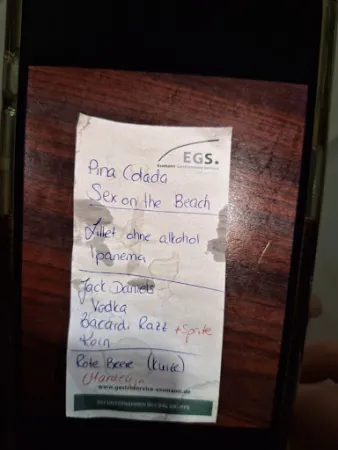 EGS.
Pina Colada
Sex on the Beach
Lillet ohne alkohol
Ipanema
Jack Daniels
Vodka
Bacardi Razz + Sprite
Korn
Rote Beere (Kurze)
www.gastroservice-essmann.de